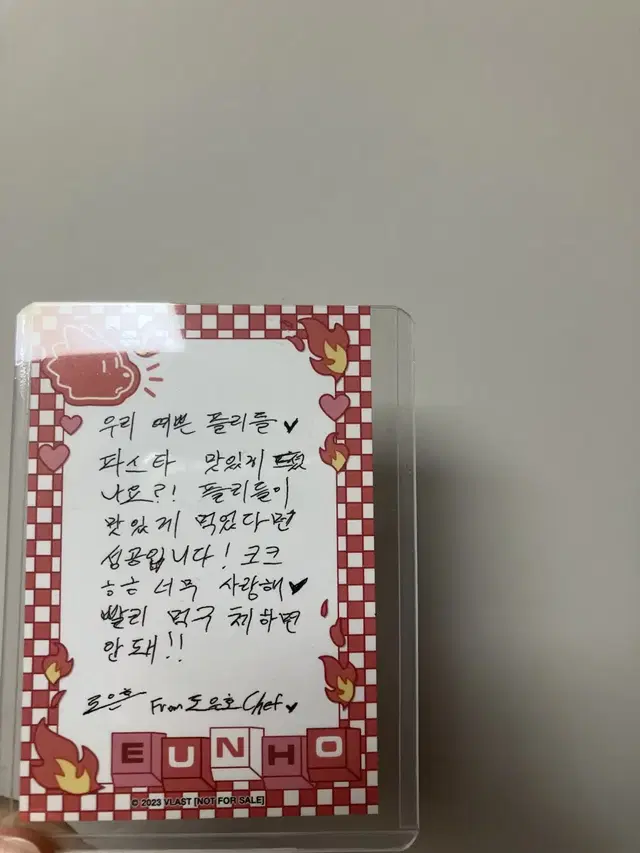 우리 예쁜 플리들
파스타 맛있게 드셨
나요?! 플리들이
맛있게 먹었다면
성공입니다! 코크
ㅎㅎ 너무 사랑해
빨리 먹구 체하면
안돼!!
도은호 From 도은호 Chef
EUNHO
© 2023 VLAST [NOT FOR SALE]